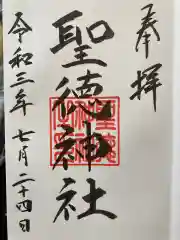 奉拝
聖徳神社
令和三年七月二十四日